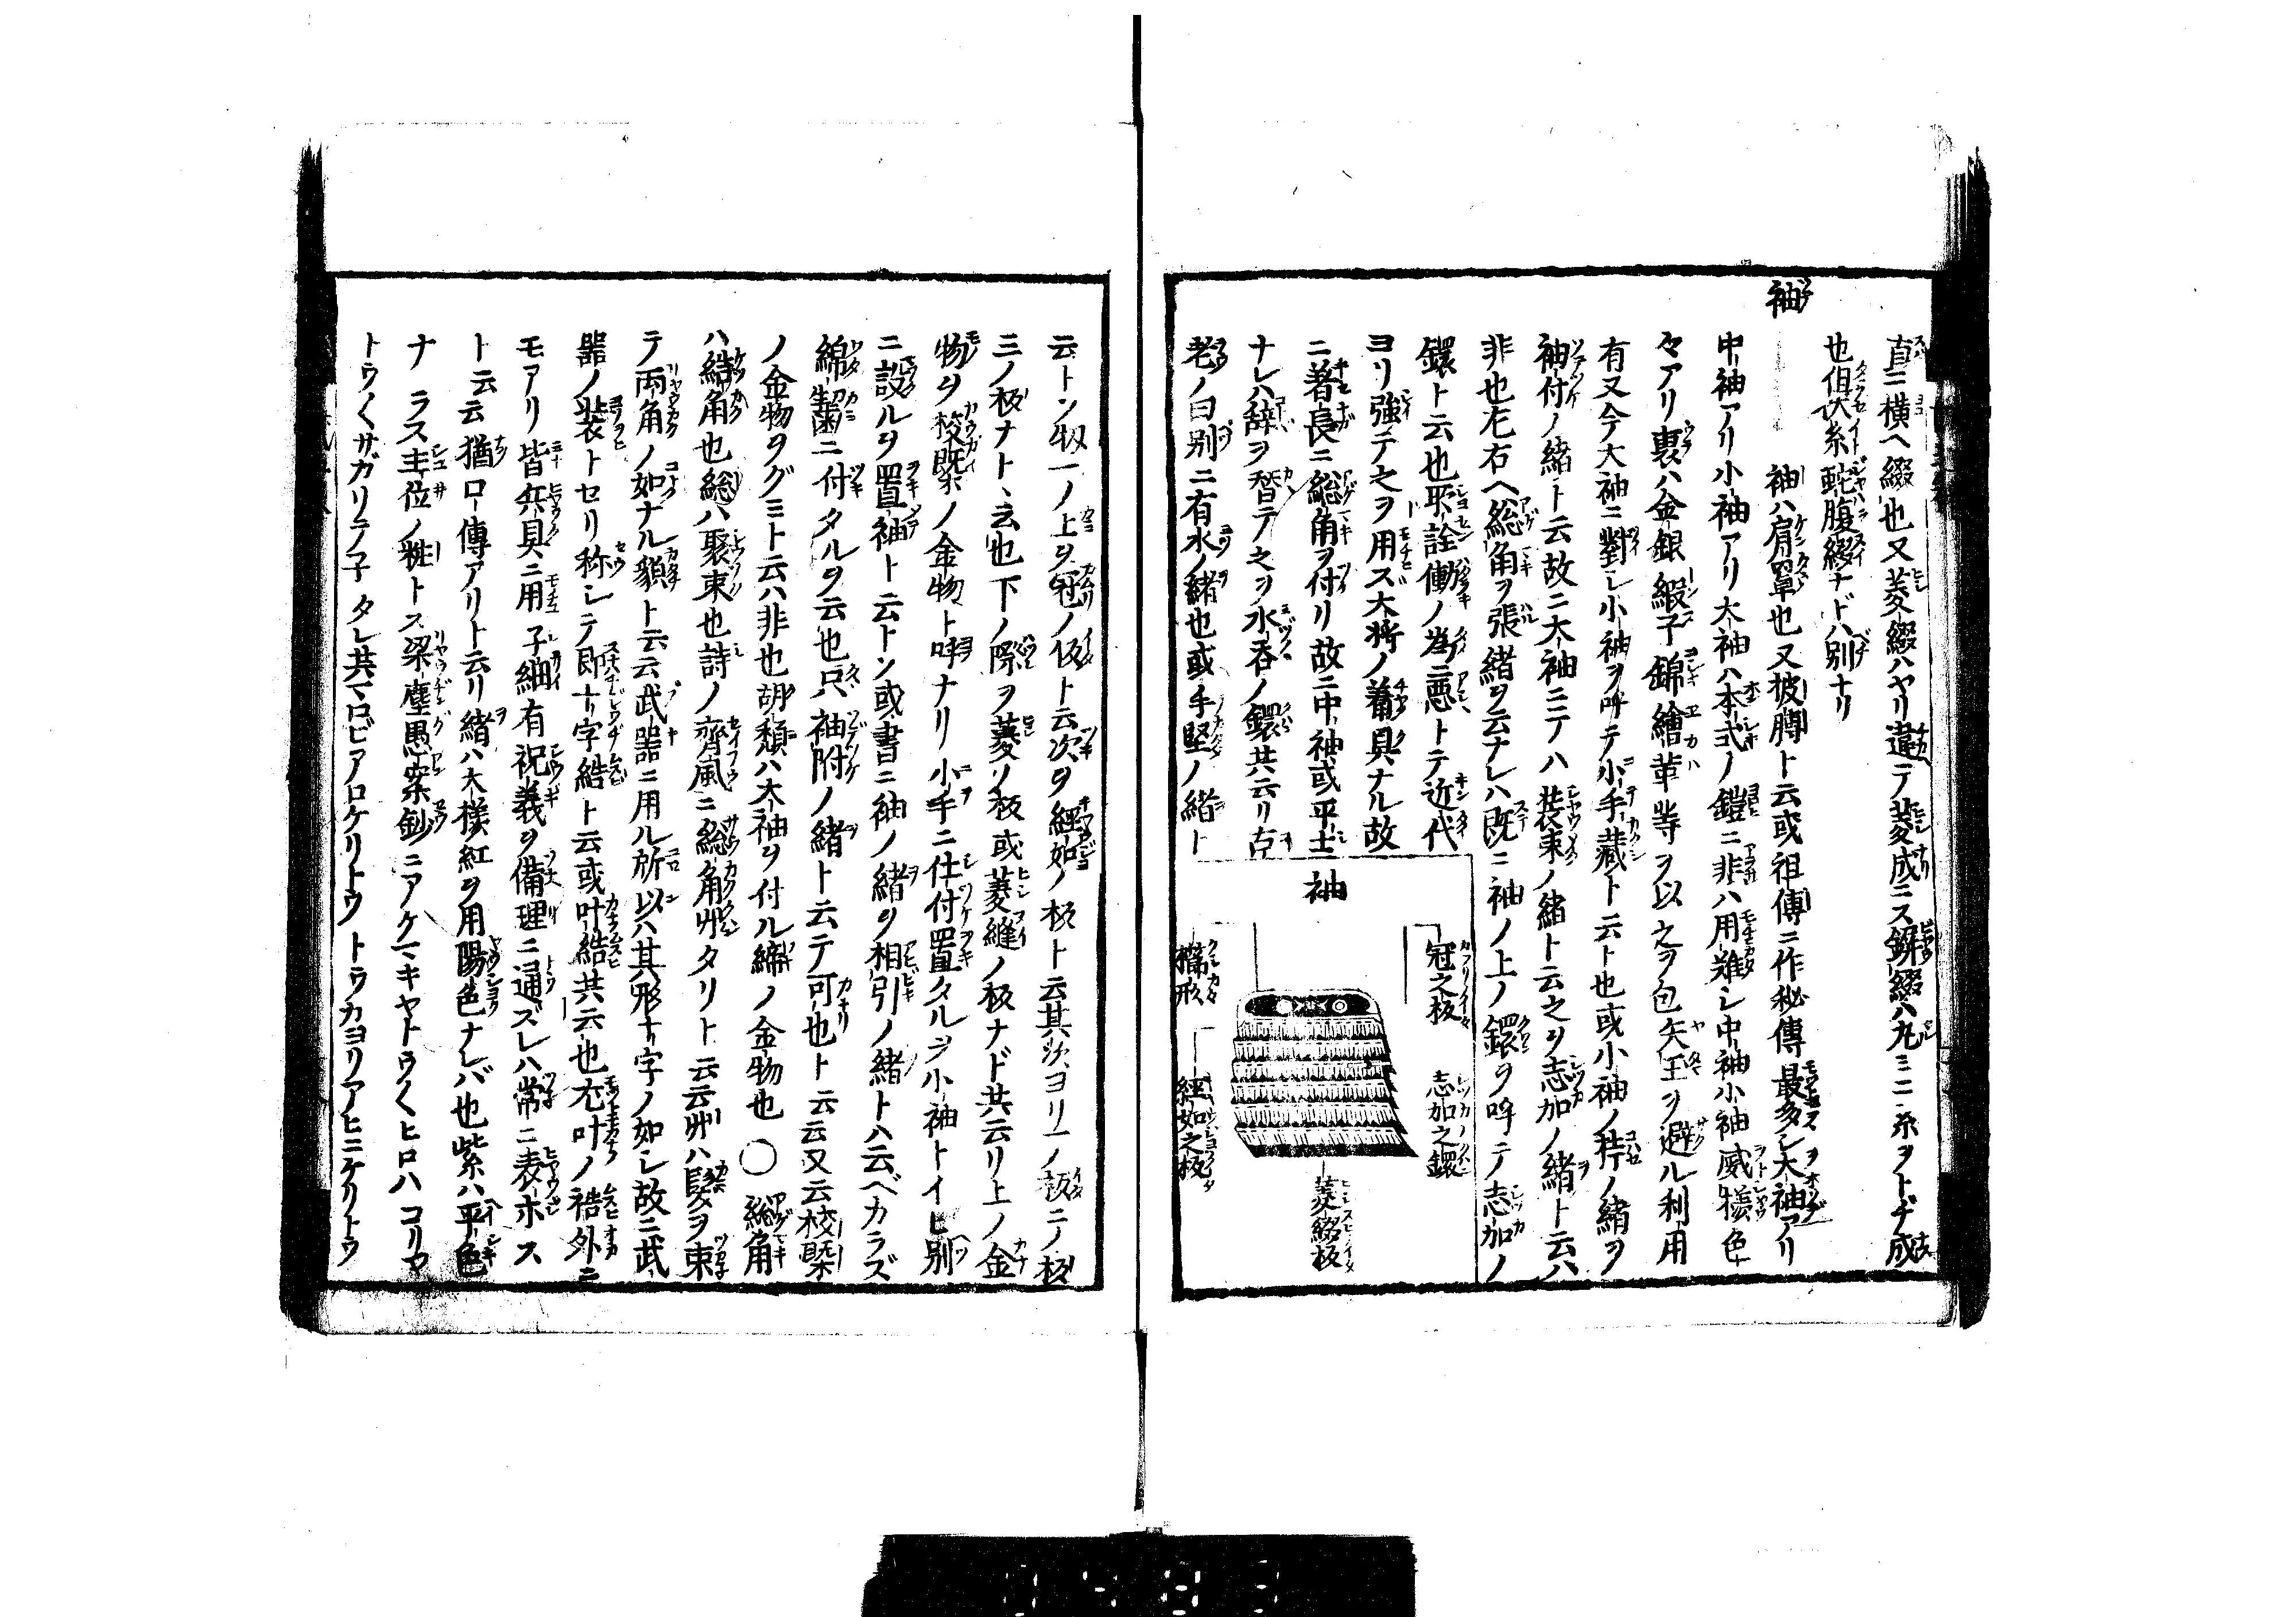 直ニ横ヘ綴也又菱綴ハヤリ違テ菱成ニス鎖綴ハ丸ミニ糸ヲトヂ成
也但伏糸蛇腹綴ナドハ別ナリ
袖
袖ハ肩罩也又披膊ト云或祖傳ニ作秘傳最多シ大袖アリ
中袖アリ小袖アリ大袖ハ本式ノ鎧ニ非ハ用難シ中袖小袖威様色
々アリ裏ハ金銀緞子錦繪革等ヲ以之ヲ包矢玉ヲ避ル利用
有又今大袖ニ對シ小袖ヲ呼テ小手蔵ト云ト也或小袖ノ鞐ノ緒ヲ
袖付ノ緒ト云故ニ大袖ニテハ装束ノ緒ト云之ヲ志加ノ緒ト云ハ
非也左右ヘ総角ヲ張緒ヲ云ナレハ既ニ袖ノ上ノ鐶ヲ呼テ志加ノ
鐶ト云也所詮働ノ為ニ悪トテ近代
ヨリ強テ之ヲ用ス大将ノ着具ナル故
ニ著長ニ総角ヲ付リ故ニ中袖或平士
ナレハ辞ヲ替テ之ヲ水呑ノ鐶共云リ古
老ノ曰別ニ有水ノ緒也或手堅ノ緒ト
袖
冠之板
志加之鐶
櫛形
經如之板
菱綴板
云トン扨一ノ上ヲ冠ノ板ト云次ヲ經如ノ板ト云其次ヨリ一ノ板二ノ板
三ノ板ナト、云也下ノ際ヲ菱ノ板或菱縫ノ板ナド共云リ上ノ金
物ヲ桉槩ノ金物ト呼ナリ小手ニ仕付置タルヲ小袖トイヒ別
ニ設ルヲ置袖ト云トン或書ニ袖ノ緒ヲ相引ノ緒トハ云ベカラズ
綿齧ニ付タルヲ云也只袖附ノ緒ト云テ可也ト云云又云桉槩
ノ金物ヲグミト云ハ非也胡頽ハ大袖ヲ付ル締ノ金物也 〇 総角
ハ結角也総ハ聚束也詩ノ齊風ニ総角丱タリト云云丱ハ髪ヲ束
テ両角ノ如ナル貌ト云云武器ニ用ル所以ハ其形十字ノ如シ故ニ武
器ノ装トセリ称シテ即十字結ト云或叶結共云也尤叶ノ結外ニ
モアリ皆兵具ニ用子細有祝義ヲ備理ニ通ズレハ常ニ表ホス
ト云云猶口傳アリト云リ緒ハ大様紅ヲ用陽色ナレバ也紫ハ平色
ナラス主位ノ粧トス梁塵愚案鈔ニアケマキヤトウ〱ヒロハコリヤ
トウ〱サガリテ子タレ共マロビアロケリトウトウカヨリアヒニケリトウ